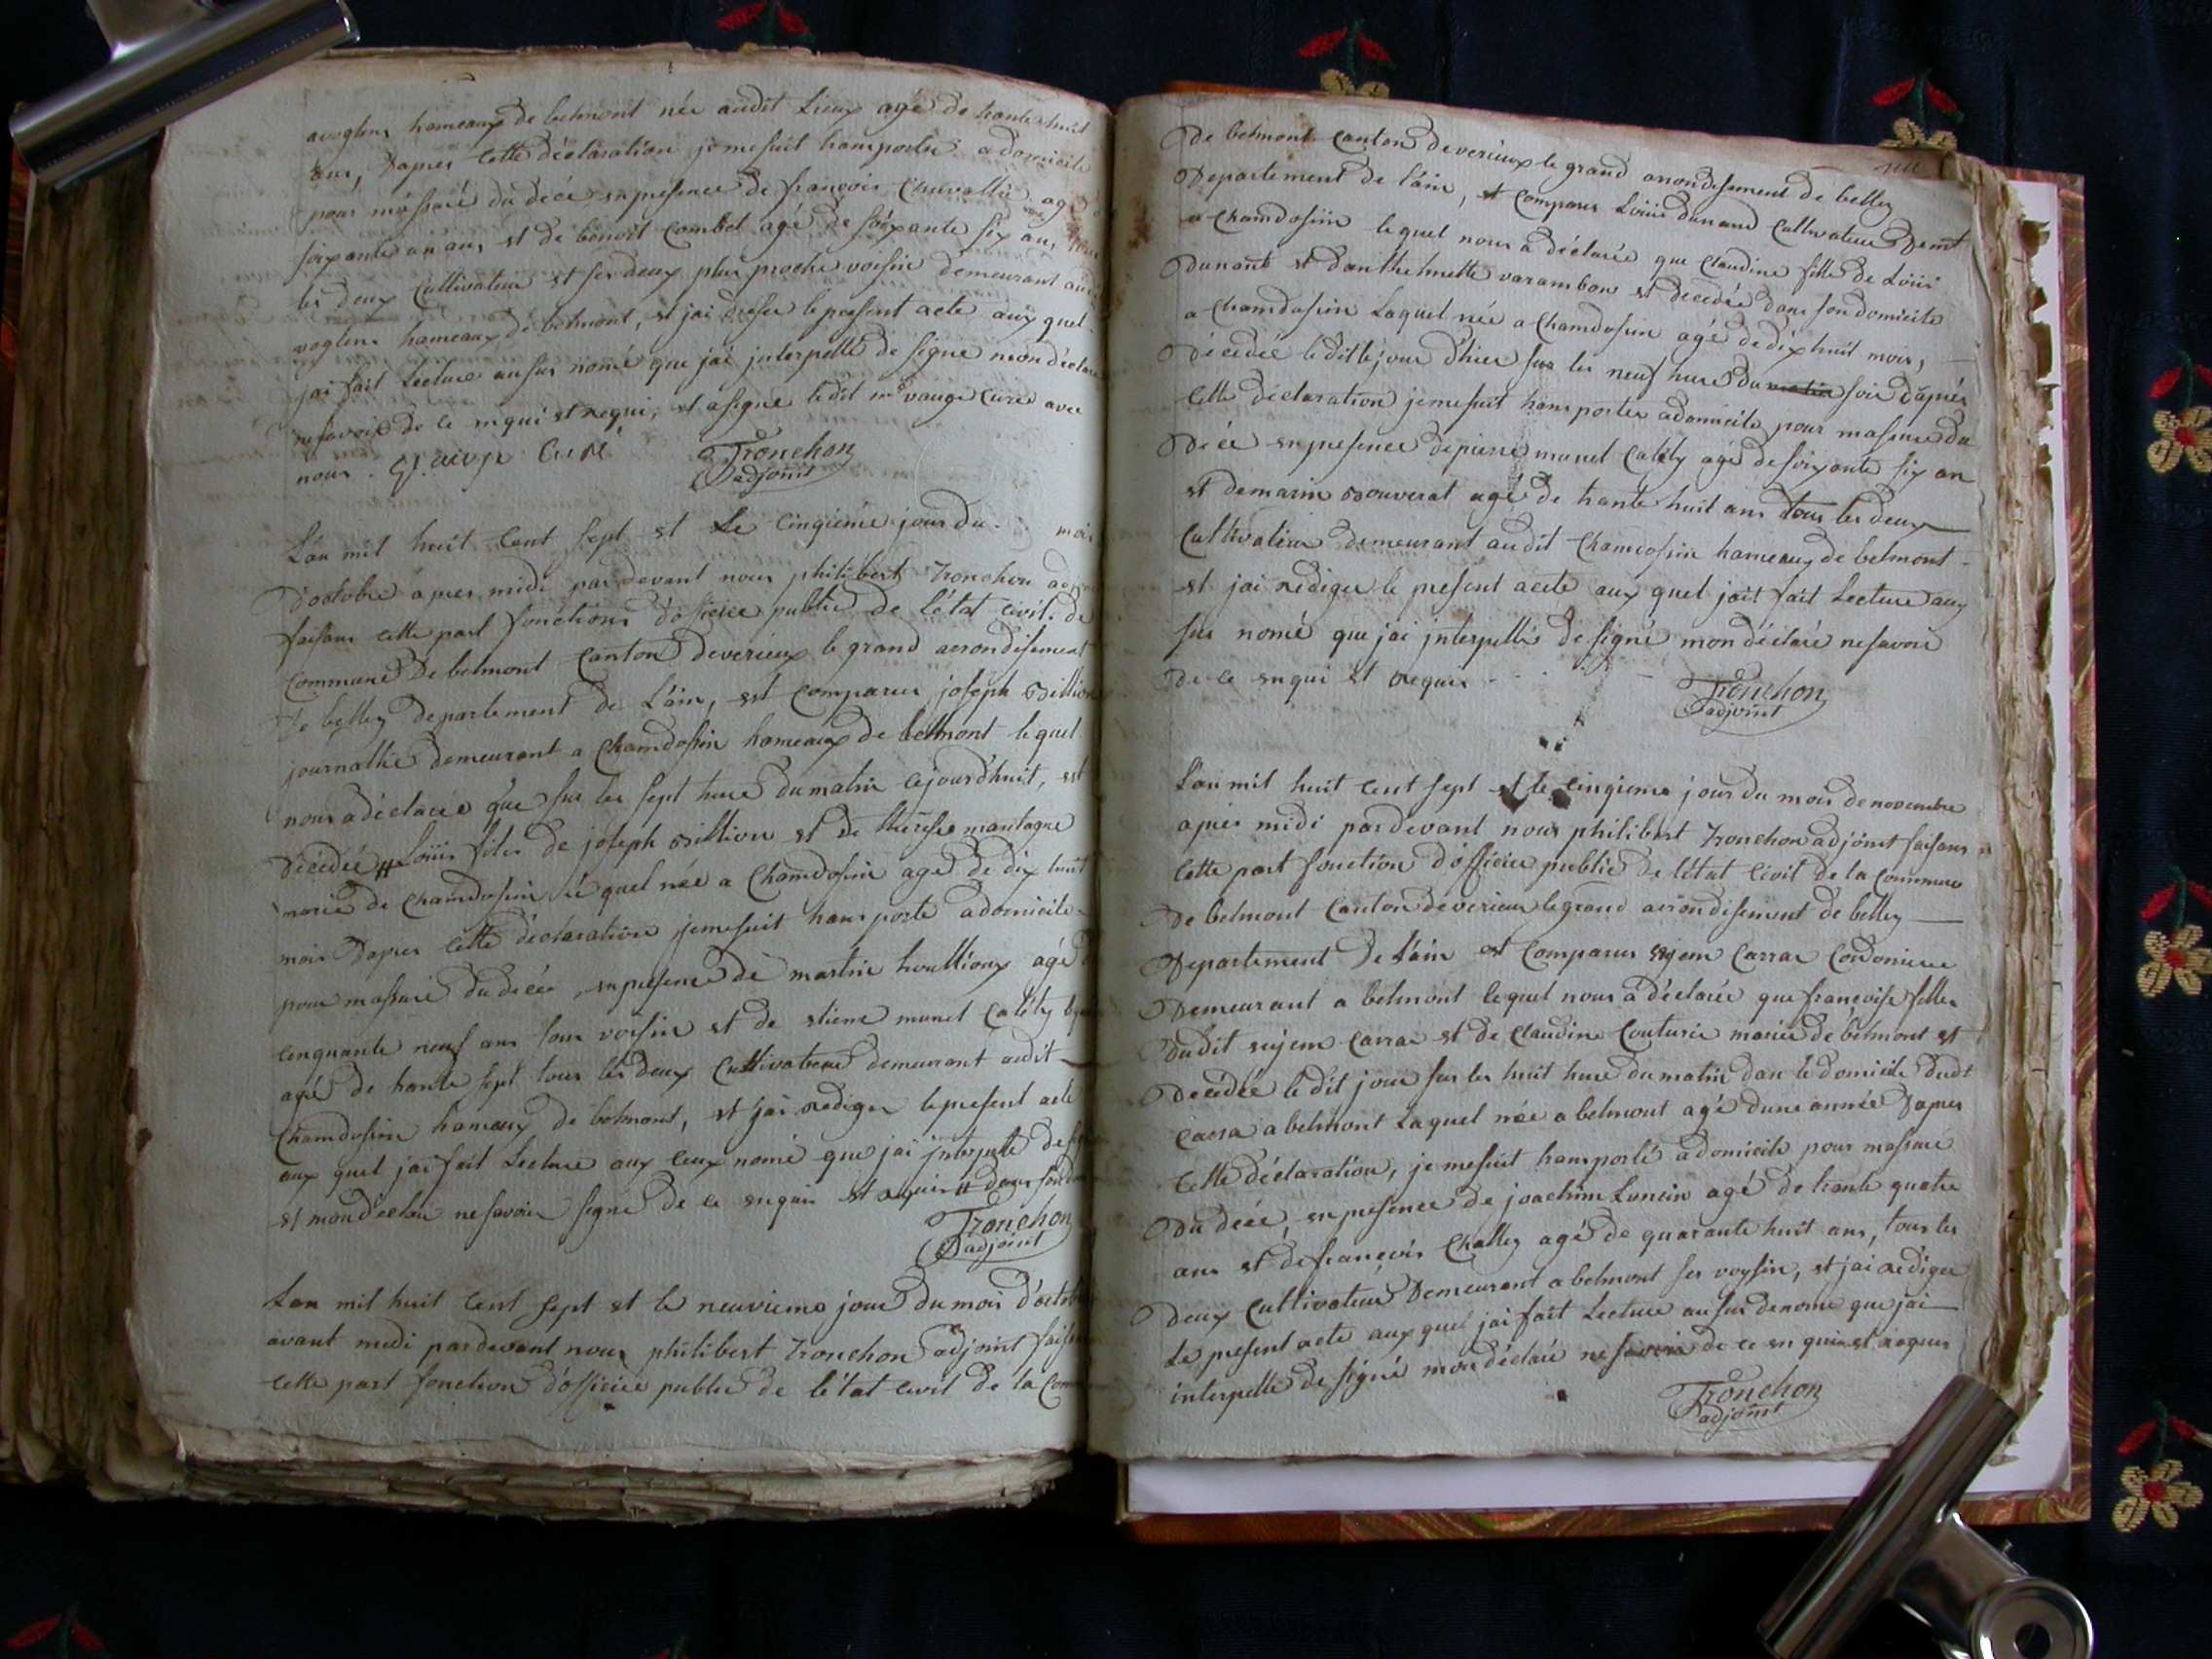 avoglens hameaux de belmont née audit Lieux agé de trante huit
ans, Dapres cette déclaration je me suit transportée a domicile
pour massuré du décé en presence de françois Chuvallie agé
soixante un ans et de benoit Combet agé de soixante six ans tous
les deux Cultivateur et ses deux plus proche voisin demeurant
voglens hameaux de belmont, et jai dresser le present acte aux quel
jai fait Lecture au sus nomé que jai interpellé de signe mon déclare
ne savoir de ce enqui et requi, et a signe ledit mr vauge Curé avec
nous. Curé Tronchon
adjoint
L'an mil huit Cent sept et Le Cinqieme jour du mois
D'octobre apres midi par devant nous philibert Tronchon
faisans cette part fonctions d'officier public de l'état civil de
Commune De belmont Canton de verieux le grand arrondisement
De belley departement de L'ain, est Comparus joseph Billion
journallie demeurant a Chamdossin hameaux de belmont le quel
nous a déclarée que sur les sept hure du matin cejourd'huit, est
Décédée # Loüis filis de joseph Billion et de therese montagne
marié de Chamdossin le quel née a Chamdosin age de dix huit
mois Dapres Cette déclaration je me suit transporte a domicile
pour massuré du décée, en presence de martin trullioux agé
Cinquante neuf ans sous voisin et de etiene munet Catéty
agé de trante sept tous les deux Cultivateur demeurant audit
Chamdossin hameaux de belmont, et jai rediger le present acte
aux quel jai fait Lecture aux ceux nomé que jai interpelle de
et mon déclare ne savoir signé de ce enquis et requis # dans
Tronchon
adjoint
Lan mil huit Cent sept et le neuvieme jour du mois d'octobre
avant midi par devant nous philibert Tronchon adjoint
cette part fonction d'officier public de l'état civil de la
De belmont Canton de verieux le grand arondisement de belley
Departement de l'ain, et Comparus Loüis dunand Cultivateur Demt
a Chamdosin le quel nous a déclarée que Claudine fille de Loüis
Dunant et danthelmette varambon et decedée dans son domicile
a Chamdosin Laquel née a Chamdosin agé de dix huit mois,
Décedée ledit le jour d'hier sur les neuf hure du matin soir d'apres
Cette déclaration je me suit transporter a domicile pour massure du
Décé en presence de pierre munet Catéty agé de soixante six an
et de marin Bouverat agé de trante huit ans tous les deux
Cultivateur demeurant audit Chamdossin hameaux de belmont
et jai rediger le present acte aux quel jait fait Lecture aux
sus nomé que jai interpellés de signé mon déclaré ne savoir
de ce enqui et requis
Tronchon
adjoint
L'an mil huit cent sept et le cinqieme jour du mois de novembre
apres midi par devant nous philibert Tronchon adjoint faisans
Cette part fonction d'officier public de l'état civil de la Commune
De belmont Canton de verieux le grand arrondisement de belley
Departement De L'ain est Comparus sujem Carrae Cordoniere
Demeurant a belmont lequel nous a déclarée que françoise filles
dudit sujem Carrae et de Claudine Couturie mariee de belmont et
Decedée le dit jour sur les huit hure du matin dans le domicile dudt
Carra a belmont Laquel née a belmont agé dune année Dapres
Cette déclaration, je me suit transporté a domicile pour massuré
Du décé, en presence de joachim Luncin agé de trante quatre
ans et de françois Challey agé de quarante huit ans, tous les
Deux Cultivateur Demeurant a belmont ses voysin, et jai rediger
Le present acte aux quel jai fait Lecture au sus denomé que jai
interpelle de signé mon déclaré ne savoir de ce en quis et requis
Tronchon
adjoint